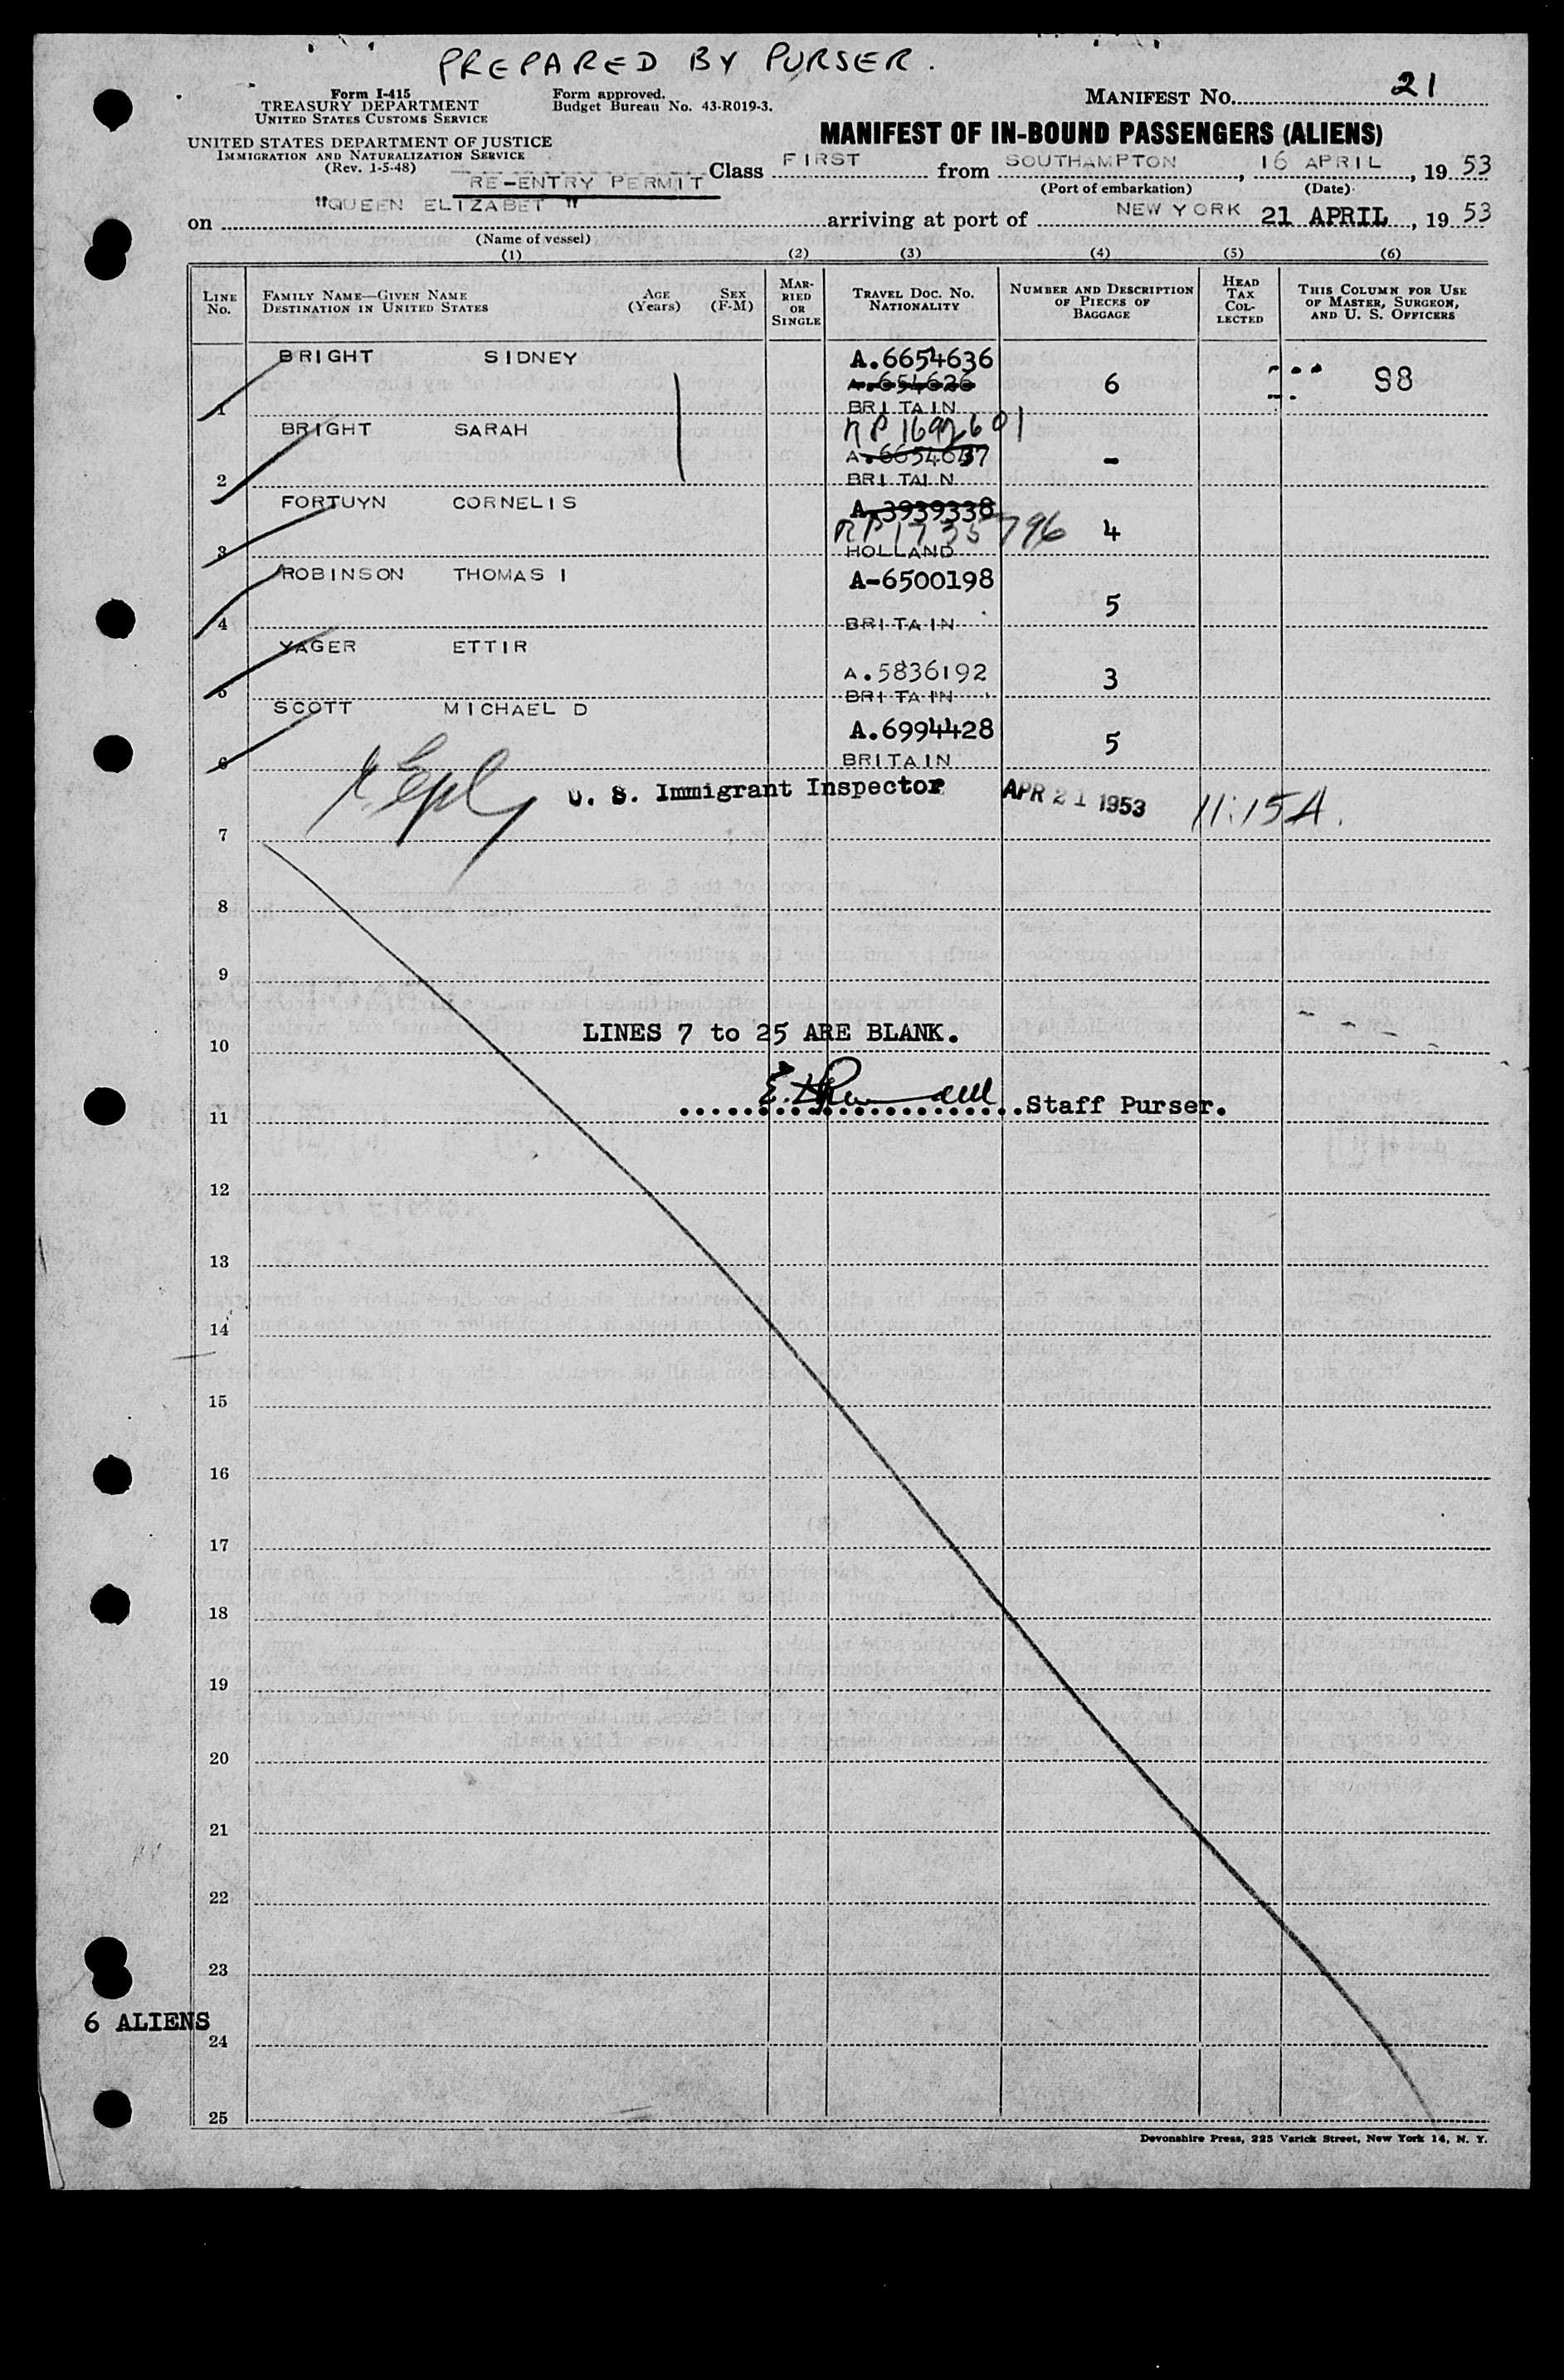 PREPARED BY PURSER.
Form I-415
TREASURY DEPARTMENT
UNITED STATES CUSTOMS SERVICE
Form approved.
Budget Bureau No. 43-R019-3.
MANIFEST NO. 21
UNITED STATES DEPARTMENT OF JUSTICE
IMMIGRATION AND NATURALIZATION SERVICE
(Rev. 1-5-48)
MANIFEST OF IN-BOUND PASSENGERS (ALIENS)
RE-ENTRY PERMIT
Class FIRST from SOUTHAMPTON, 16 APRIL, 19 53
(Port of embarkation) (Date)
on "QUEEN ELIZABET " arriving at port of NEW YORK 21 APRIL, 19 53
(Name of vessel)
(1) (2) (3) (4) (5) (6)
LINE NO. FAMILY NAME—GIVEN NAME DESTINATION IN UNITED STATES AGE (Years) SEX (F-M) MARRIED OR SINGLE TRAVEL DOC. NO. NATIONALITY NUMBER AND DESCRIPTION OF PIECES OF BAGGAGE HEAD TAX COLLECTED THIS COLUMN FOR USE OF MASTER, SURGEON, AND U. S. OFFICERS
BRIGHT SIDNEY A.6654636
A.654626 6 S8
1 BRITAIN
BRIGHT SARAH RP 1692601
A.6654637 -
2 BRITAIN
FORTUYN CORNELIS A.3939338
RP 1735796 4
3 HOLLAND
ROBINSON THOMAS I A-6500198
5
4 BRITAIN
YAGER ETTIR
A.5836192 3
5 BRITAIN
SCOTT MICHAEL D
A.6994428 5
6 BRITAIN
U. S. Immigrant Inspector APR 21 1953 11:15A.
7
8
9
LINES 7 to 25 ARE BLANK.
10
Staff Purser.
11
12
13
14
15
16
17
18
19
20
21
22
23
6 ALIENS
24
25
Devonshire Press, 225 Varick Street, New York 14, N. Y.